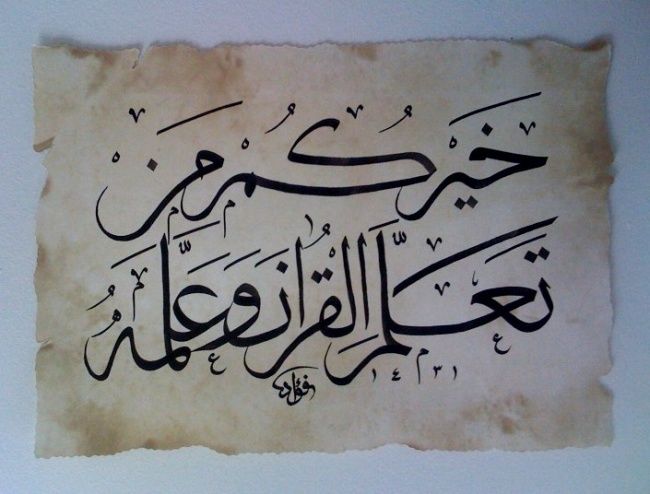 خَيْرُكُمْ مَنْ
تَعَلَّمَ القُرْانَ وَعَلَّمَهُ
١٤٣١
فؤاد